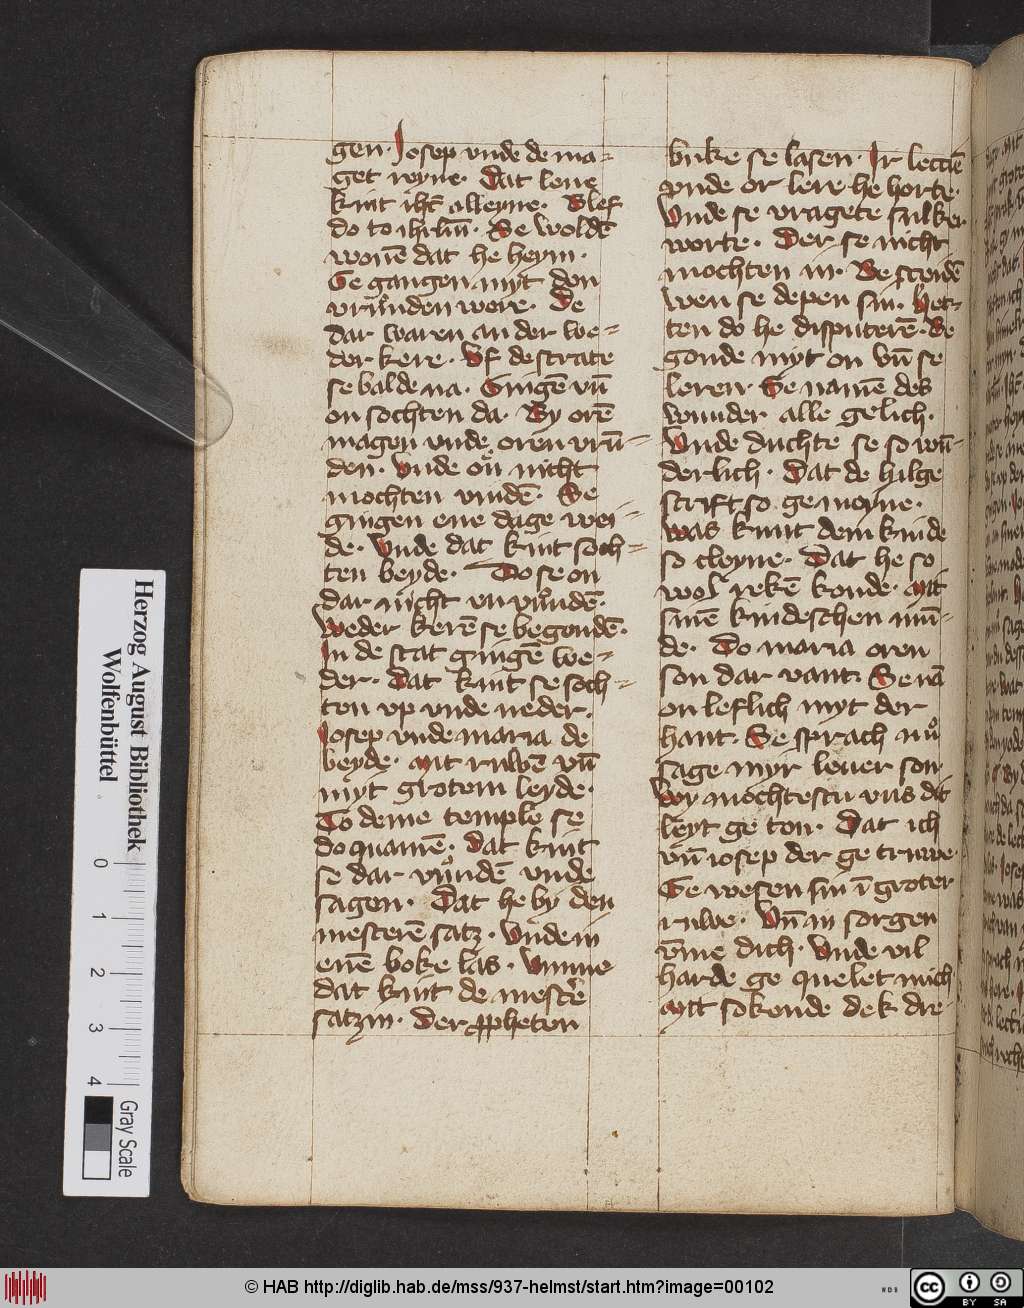 gen. Josep vnde de ma-
get reyne. Dat leue
kint ihc̄ alleyne. Blef
do to ihrlm̄. Se woldē
wonē dat he heym.
Ge gangen myt den
vrůnden were. De
dar waren an der we-
der kere. Vf de strate
se balde na. Gingē vn̄
on sochten da. By orē
magen vnde oren vrů-
den. Vnde on nicht
mochten vindē. Se
gingen ene dage wei-
de. Vnde dat kint soch-
ten beyde. Do se on
dar nicht vn vůndē.
Weder kerē se begondē.
In de stat gingē we-
der. Dat kint se soch-
ten vp vnde neder.
Josep vnde maria de
beyde. Mit ruwē vn̄
myt grotem leyde.
To deme temple se
do quamē. Dat kint
se dar vůndē vnde
sagen. Dat he by den
mesterē satz. Vnde in
enē boke las. Vmme
dat kint de mestē
satzin. Der ꝓpheten
buke se lasen. Ir lectiē
vnde or lere he horte.
Vnde se vragete sulker
worte. Der se nicht
mochten in. Be scheidē
wen se depen sin. Het-
ten do he disputerē. Be
gonde myt on vn̄ se
leren. Se namē des
wunder alle gelich.
Vnde duchte se so wů-
derlich. Dat de hilge
scrift so gemeyne.
Was kunt dem kinde
so cleyne. Dat he so
wol rekē konde. Mit
sinē kindeschen mun-
de. Do maria oren
son dar vant. Se nā
on leflich myt der
hant. Se sprach nů
sage myr leuer son
Wy mochtestu vns dit
leyt ge ton. Dat ich
vn̄ iosep der ge truwe.
Ge wesen sin ī groter
ruwe. Vn̄ in sorgen
vme dich. Vnde vil
harde ge quelet mich
Mit sokende dek dre
Herzog August Bibliothek
Wolfenbüttel
0 1 2 3 4
Gray Scale
© HAB http://diglib.hab.de/mss/937-helmst/start.htm?image=00102
WDB
cc BY SA